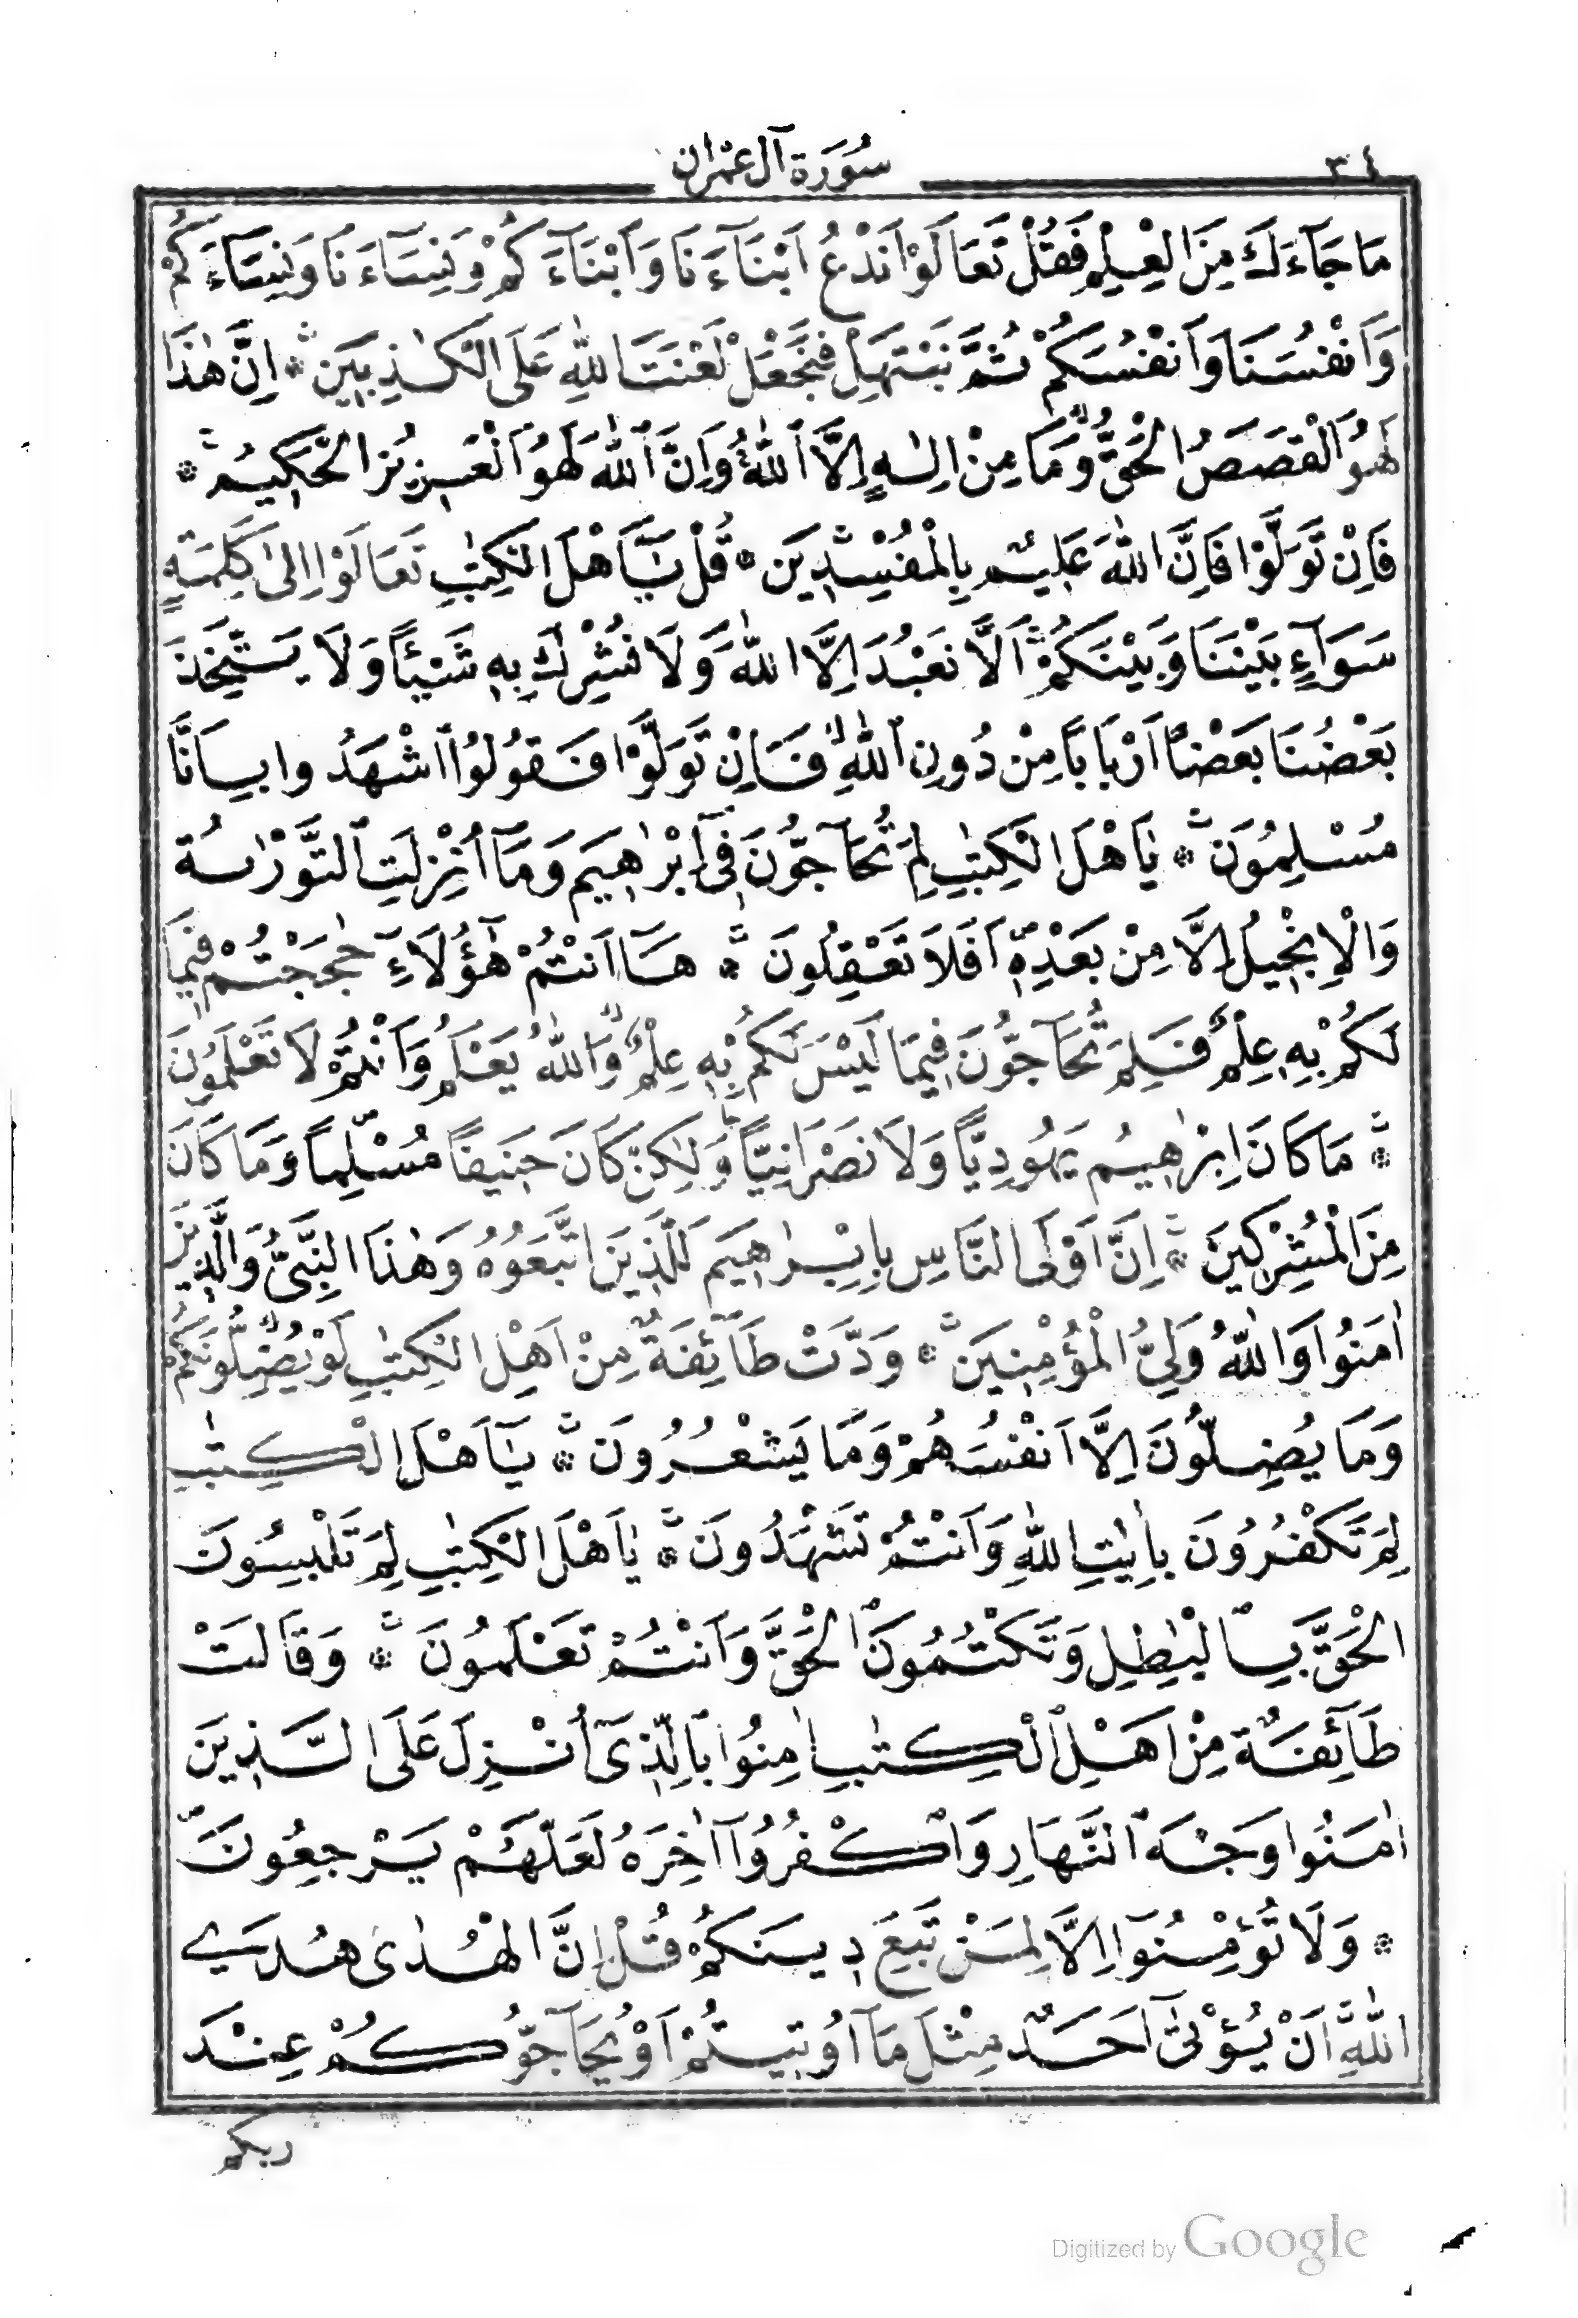 ٣٤
سُورَة آل عِمْرٰان
مَا جَآءَكَ مِنَ الْعِلْمِ فَقُلْ تَعَالَوْا نَدْعُ اَبْنَآءَنَا وَاَبْنَآءَكُمْ وَنِسَآءَنَا وَنِسَآءَكُمْ
وَاَنْفُسَنَا وَاَنْفُسَكُمْ ثُمَّ نَبْتَهِلْ فَنَجْعَلْ لَعْنَتَ اللّٰهِ عَلَى الْكٰذِبِينَ ۞ اِنَّ هٰذَا
لَهُوَ الْقَصَصُ الْحَقُّ وَمَا مِنْ اِلٰهٍ اِلَّا اللّٰهُ وَاِنَّ اللّٰهَ لَهُوَ الْعَزِيزُ الْحَكِيمُ ۞
فَاِنْ تَوَلَّوْا فَاِنَّ اللّٰهَ عَلِيمٌ بِالْمُفْسِدِينَ ۞ قُلْ يَآاَهْلَ الْكِتٰبِ تَعَالَوْا اِلٰى كَلِمَةٍ
سَوَآءٍ بَيْنَنَا وَبَيْنَكُمْ اَلَّا نَعْبُدَ اِلَّا اللّٰهَ وَلَا نُشْرِكَ بِهٖ شَيْئًا وَلَا يَتَّخِذَ
بَعْضُنَا بَعْضًا اَرْبَابًا مِنْ دُونِ اللّٰهِ فَاِنْ تَوَلَّوْا فَقُولُوا اشْهَدُوا بِاَنَّا
مُسْلِمُونَ ۞ يٰاَهْلَ الْكِتٰبِ لِمَ تُحَآجُّونَ فِىٓ اِبْرٰهِيمَ وَمَآ اُنْزِلَتِ التَّوْرٰىةُ
وَالْاِنْجِيلُ اِلَّا مِنْ بَعْدِهٖٓ اَفَلَا تَعْقِلُونَ ۞ هَآاَنْتُمْ هٰٓؤُلَآءِ حٰجَجْتُمْ فِيمَا
لَكُمْ بِهٖ عِلْمٌ فَلِمَ تُحَآجُّونَ فِيمَا لَيْسَ لَكُمْ بِهٖ عِلْمٌ وَاللّٰهُ يَعْلَمُ وَاَنْتُمْ لَا تَعْلَمُونَ
۞ مَا كَانَ اِبْرٰهِيمُ يَهُودِيًّا وَلَا نَصْرَانِيًّا وَلٰكِنْ كَانَ حَنِيفًا مُسْلِمًا وَمَا كَانَ
مِنَ الْمُشْرِكِينَ ۞ اِنَّ اَوْلَى النَّاسِ بِاِبْرٰهِيمَ لَلَّذِينَ اتَّبَعُوهُ وَهٰذَا النَّبِىُّ وَالَّذِينَ
اٰمَنُوا وَاللّٰهُ وَلِىُّ الْمُؤْمِنِينَ ۞ وَدَّتْ طَآئِفَةٌ مِنْ اَهْلِ الْكِتٰبِ لَوْ يُضِلُّونَكُمْ
وَمَا يُضِلُّونَ اِلَّا اَنْفُسَهُمْ وَمَا يَشْعُرُونَ ۞ يَآاَهْلَ الْكِتٰبِ
لِمَ تَكْفُرُونَ بِاٰيٰتِ اللّٰهِ وَاَنْتُمْ تَشْهَدُونَ ۞ يٰاَهْلَ الْكِتٰبِ لِمَ تَلْبِسُونَ
الْحَقَّ بِالْبٰطِلِ وَتَكْتُمُونَ الْحَقَّ وَاَنْتُمْ تَعْلَمُونَ ۞ وَقَالَتْ
طَآئِفَةٌ مِنْ اَهْلِ الْكِتٰبِ اٰمِنُوا بِالَّذِىٓ اُنْزِلَ عَلَى الَّذِينَ
اٰمَنُوا وَجْهَ النَّهَارِ وَاكْفُرُوٓا اٰخِرَهُ لَعَلَّهُمْ يَرْجِعُونَ
۞ وَلَا تُؤْمِنُوٓا اِلَّا لِمَنْ تَبِعَ دِينَكُمْ قُلْ اِنَّ الْهُدٰى هُدَى
اللّٰهِ اَنْ يُؤْتٰىٓ اَحَدٌ مِثْلَ مَآ اُوتِيتُمْ اَوْ يُحَآجُّوكُمْ عِنْدَ
ربكم
Digitized by Google